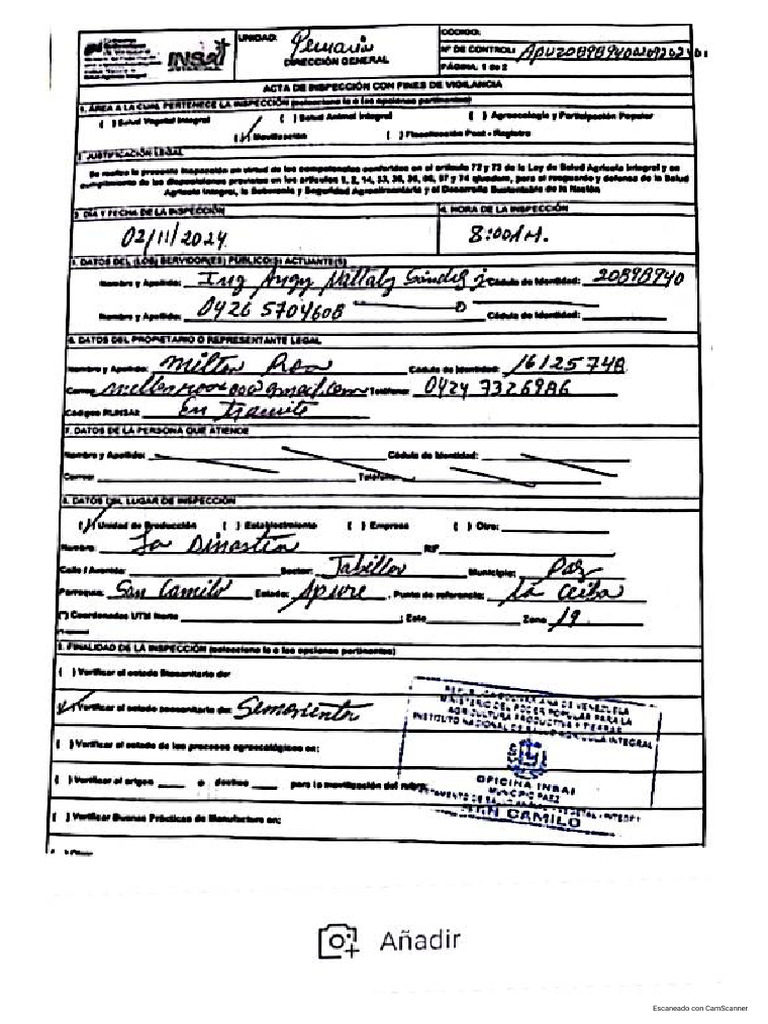 INSAI
UNIDAD: Pecuaria
DIRECCIÓN GENERAL
CÓDIGO:
Nº DE CONTROL:
PÁGINA: 1 de 2
ACTA DE INSPECCIÓN CON FINES DE VIGILANCIA
1. ÁREA A LA CUAL PERTENECE LA INSPECCIÓN (seleccione la o las opciones pertinentes)
( ) Salud Vegetal Integral ( ) Salud Animal Integral ( ) Agroecología y Participación Popular
(✓) Movilización ( ) Fiscalización Post - Registro
2. JUSTIFICACIÓN LEGAL
Se realiza la presente inspección en virtud de las competencias conferidas en el artículo 72 y 73 de la Ley de Salud Agrícola Integral y en
cumplimiento de las disposiciones previstas en los artículos
Agrícola Integral, la Soberanía y Seguridad Agroalimentaria y el Desarrollo Sustentable de la Nación
3. DIA Y FECHA DE LA INSPECCIÓN
4. HORA DE LA INSPECCIÓN
02/11/2024
8:00 AM.
5. DATOS DEL (LOS) SERVIDOR(ES) PÚBLICO(S) ACTUANTE(S)
Nombre y Apellido: Ing Angy Cédula de Identidad: 20898940
Nombre y Apellido: 0426 5704608 Cédula de Identidad:
6. DATOS DEL PROPIETARIO O REPRESENTANTE LEGAL
Nombre y Apellido: Milton Cédula de Identidad: 16125748
Correo: @gmail.com Teléfono: 0424 7326986
Código RUNSAI: En tramite
7. DATOS DE LA PERSONA QUE ATIENDE
Nombre y Apellido: Cédula de Identidad:
Correo: Teléfono:
8. DATOS DEL LUGAR DE INSPECCIÓN
(✓) Unidad de Producción ( ) Establecimiento ( ) Empresa ( ) Otro:
Nombre: La Dinastia RIF
Calle / Avenida: Sector: Jabillos Municipio: Paez
Parroquia: San Camilo Estado: Apure. Punto de referencia: La Ceiba
(*) Coordenadas UTM Norte ; Este Zona: 19
9. FINALIDAD DE LA INSPECCIÓN (seleccione la o las opciones pertinentes)
( ) Verificar el estado fitosanitario de:
(✓) Verificar el estado zoosanitario de: Semovientes
( ) Verificar el estado de los procesos agroecológicos en:
( ) Verificar el origen o destino para la movilización del rubro:
( ) Verificar Buenas Prácticas de Manufactura en:
( ) Otros
REPUBLICA BOLIVARIANA DE VENEZUELA
MINISTERIO DEL PODER POPULAR PARA LA
AGRICULTURA PRODUCTIVA Y TIERRAS
INSTITUTO NACIONAL DE SALUD AGRICOLA INTEGRAL
OFICINA INSAI
MUNICIPIO PAEZ
SAN CAMILO
Añadir
Escaneado con CamScanner